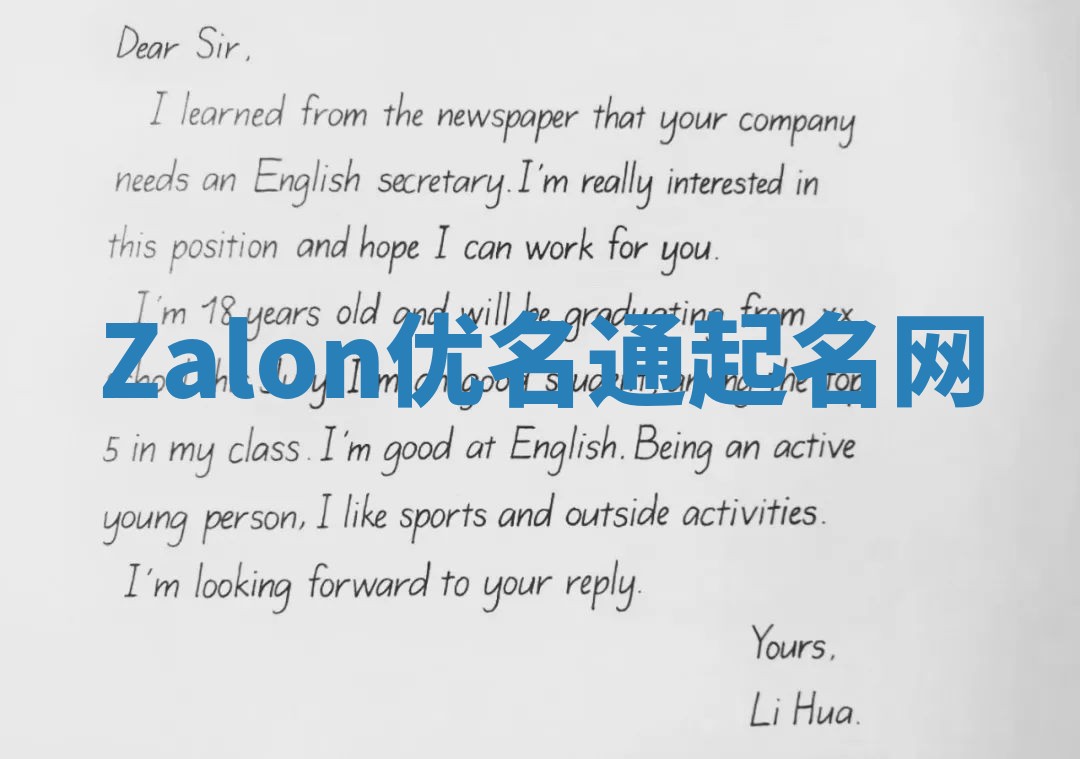 Dear Sir,
I learned from the newspaper that your company
needs an English secretary. I'm really interested in
this position and hope I can work for you.
I'm 18 years old and will be graduating from xx
Zalon优名通起名网
school this July. I'm a good student, among the top
5 in my class. I'm good at English. Being an active
young person, I like sports and outside activities.
I'm looking forward to your reply.
Yours,
Li Hua.